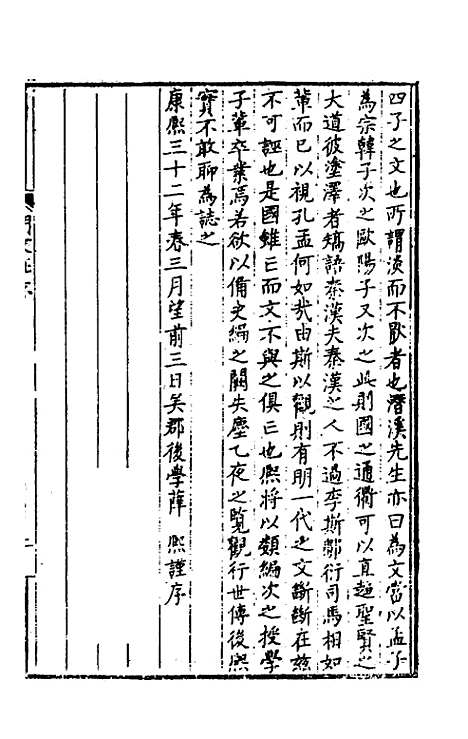 四子之文也所謂淡而不厭者也潛溪先生亦曰為文當以孟子
為宗韓子次之歐陽子又次之此則國之通衢可以直趨聖賢之
大道彼塗澤者矯語秦漢夫秦漢之人不過李斯鄒衍司馬相如
輩而已以視孔孟何如哉由斯以觀則有明一代之文斷斷在茲
不可誣也是國雖亡而文不與之俱亡也熙將以類編次之授學
子輩卒業焉若欲以備史編之闕失塵乙夜之覽觀行世傳後熙
實不敢聊為誌之
康熙三十二年春三月望前三日吳郡後學薛 熙謹序
明文在序